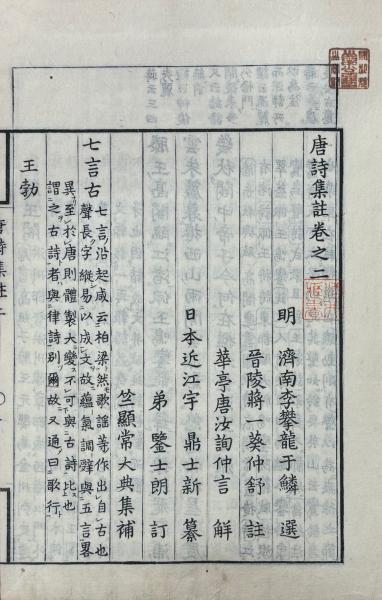 唐詩集註卷之二
明 濟南李攀龍于鱗 選
晉陵蔣一葵仲舒 註
華亭唐汝詢仲言 解
日本近江宇 鼎士新 纂
弟 鑒士朗 訂
竺顯常大典集補
七言古 七言沿起咸云柏梁然歌謠等作出自古也
聲長字縱易以成文故蘊氣調辭與五言畧
異至於唐則體製大變不可與古詩比也
謂之古詩者與律詩別爾故又通曰歌行
王勃
唐詩集註